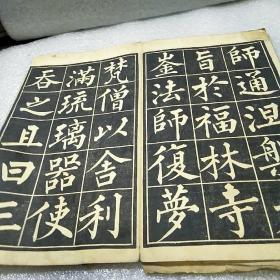 師通涅槃
旨於福林寺
崟法師復夢
梵僧以舍利
滿琉璃器使
吞之且曰三